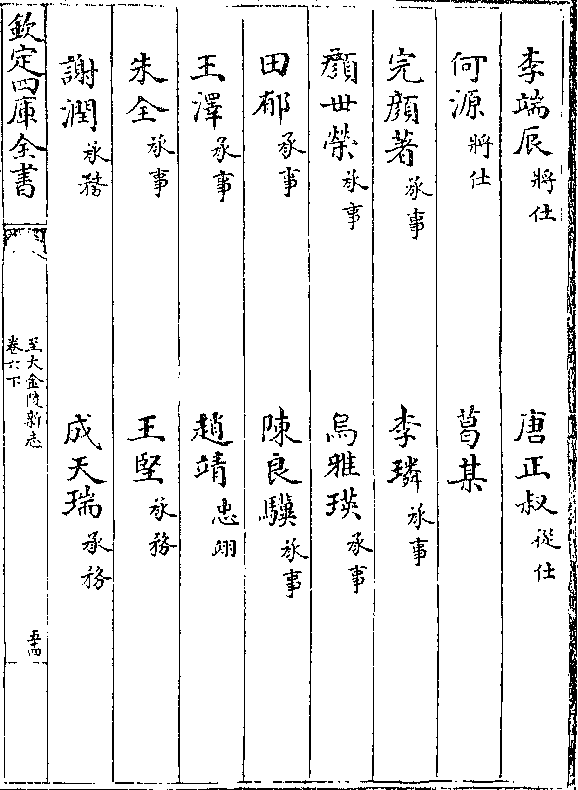 李端辰將仕　唐正叔從仕
何源將仕　葛某
完顔著承事　李璘承事
顔世榮承事　烏雅瑛承事
田郁承事　陳良驥承事
王澤承事　趙靖忠翊
朱全承事　王堅承務
謝潤承務　成天瑞承務
欽定四庫全書
至大金陵新志
卷六下
五十四